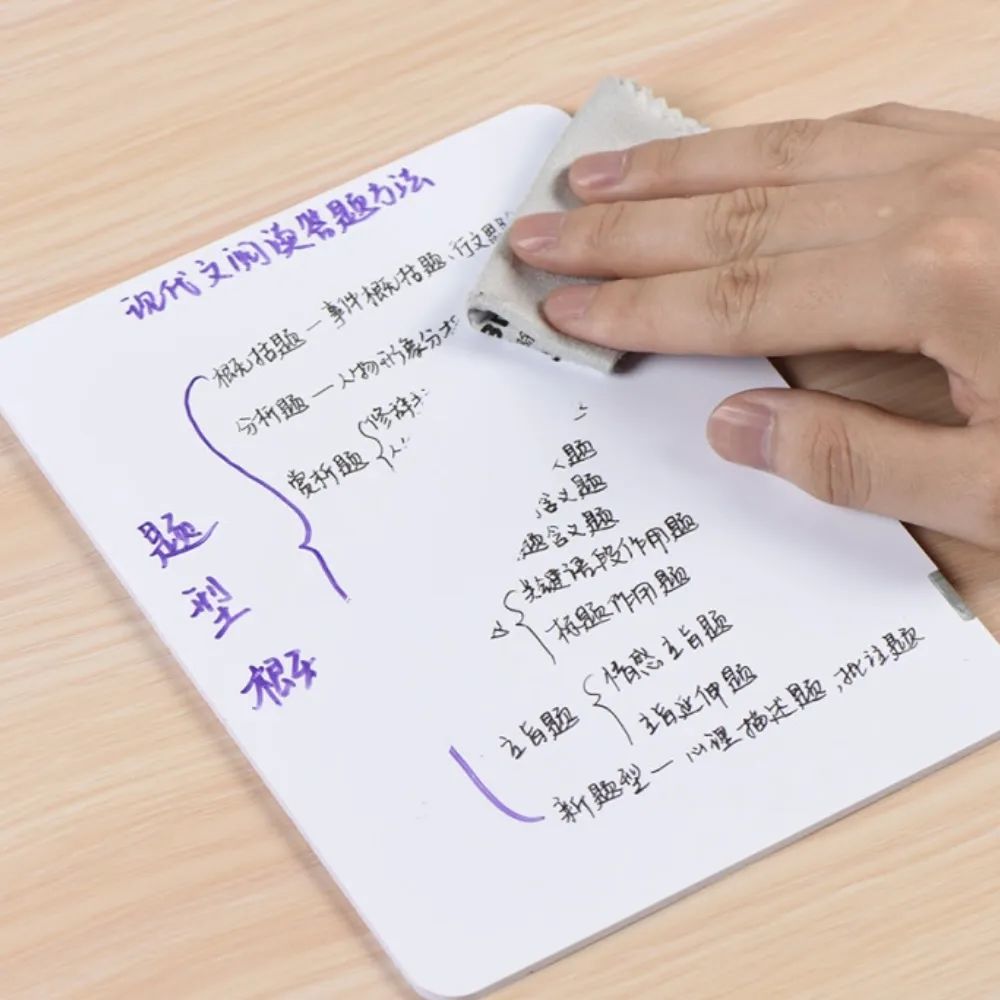 现代文阅读答题方法
概括题—事件概括题、行文思
分析题—人物形象分
赏析题
修辞
题
含义题
题含义题
关键语段作用题
标题作用题
主旨题
情感主旨题
主旨延伸题
新题型—心理描述题,批注题
题
型
概